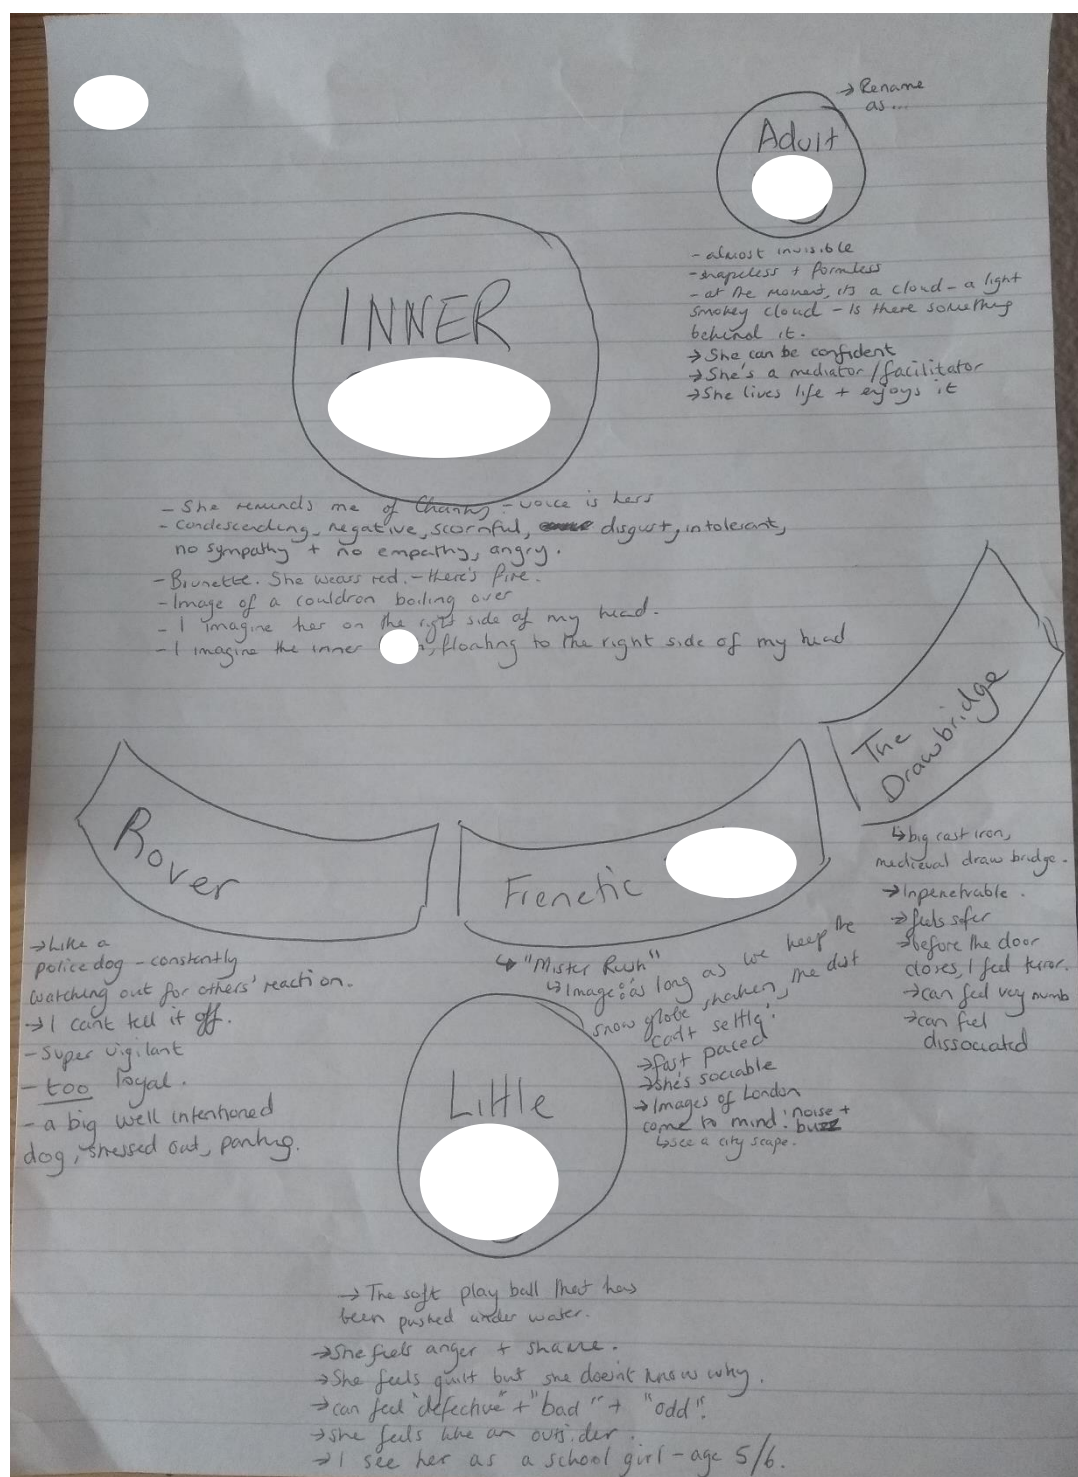 → Rename
as...
Adult
- almost invisible
- shapeless + formless
- at the moment, its a cloud - a light
smokey cloud - Is there something
behind it.
→ She can be confident
→ She's a mediator/facilitator
→ She lives life + enjoys it
INNER
- She reminds me of - voice is hers
- Condescending, negative, scornful, disgust, intolerant,
no sympathy + no empathy, angry.
- Brunette. She wears red. - there's fire.
- Image of a couldron boiling over
- I imagine her on the right side of my head.
- I imagine the inner , floating to the right side of my head
The
Drawbridge
↳ big cast iron,
medieval draw bridge.
→ Inpenetrable.
→ feels safer
→ before the door
closes, I feel terror.
→ can feel very numb
→ can feel
dissociated
Rover
→ Like a
police dog - constantly
watching out for others' reaction.
→ I cant tell it off.
- Super vigilant
- too loyal.
- a big well intentioned
dog, stressed out, panting.
Frenetic
↳ "Mister Rush"
↳ Image: as long as we keep the
snow globe shaken, the dust
can't settle!
→ fast paced
→ She's sociable
→ Images of London
come to mind: noise +
buzz
↳ see a city scape.
Little
→ The soft play ball that has
been pushed under water.
→ She feels anger + shame.
→ She feels guilt but she doesn't know why.
→ can feel "defective" + "bad" + "odd".
→ She feels like an outsider.
→ I see her as a school girl - age 5/6.